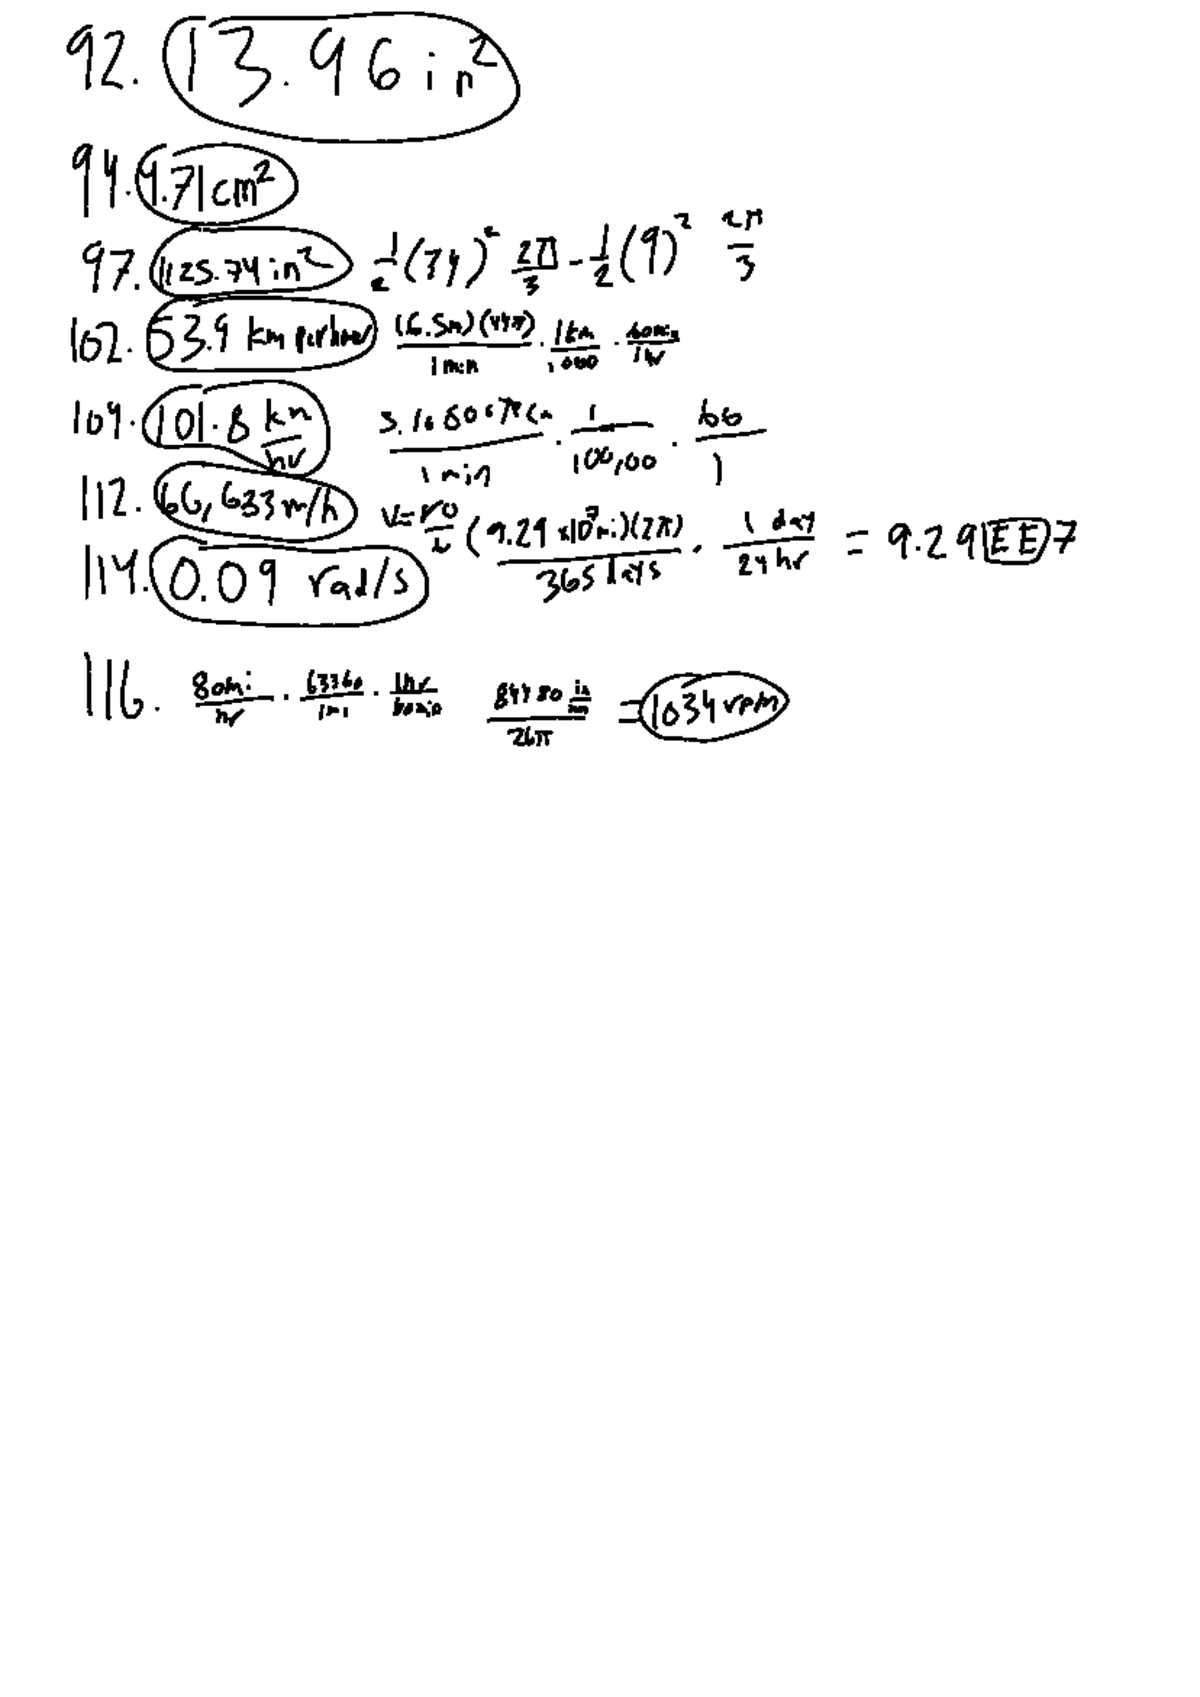 92. 13.96 in²
94. 4.71 cm²
97. 1125.74 in² 1/2 (34)² 2π/3 - 1/2 (9)² 2π/3
102. 53.9 km per hour (6.5m)(44π)/1 min · 1km/1000 · 60min/1hr
109. 101.8 km/hr /1 min · 1/100,00 · 60/1
112. 66,633 m/h v=rθ/t (9.29 x10⁷mi)(2π)/365 days · 1 day/24 hr = 9.29 EE 7
114. 0.09 rad/s
116. 80mi/hr · 63360/1mi · 1hr/60min 84480 in/min/26π = 1034 rpm